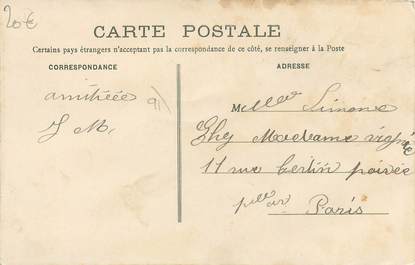 20€
CARTE POSTALE
Certains pays étrangers n'acceptant pas la correspondance de ce côté, se renseigner à la Poste
CORRESPONDANCE
ADRESSE
amitiéée
J M,
91
M elle Simone
Chez Madame
11 rue Bertin poirée
Paris